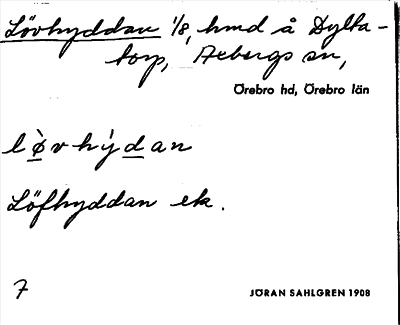 Lövhyddan 1/8, hmd å Dylta-
torp, Axbergs sn,
Örebro hd, Örebro län
lø̀vhýdan
Löfhyddan ek.
7
JÖRAN SAHLGREN 1908